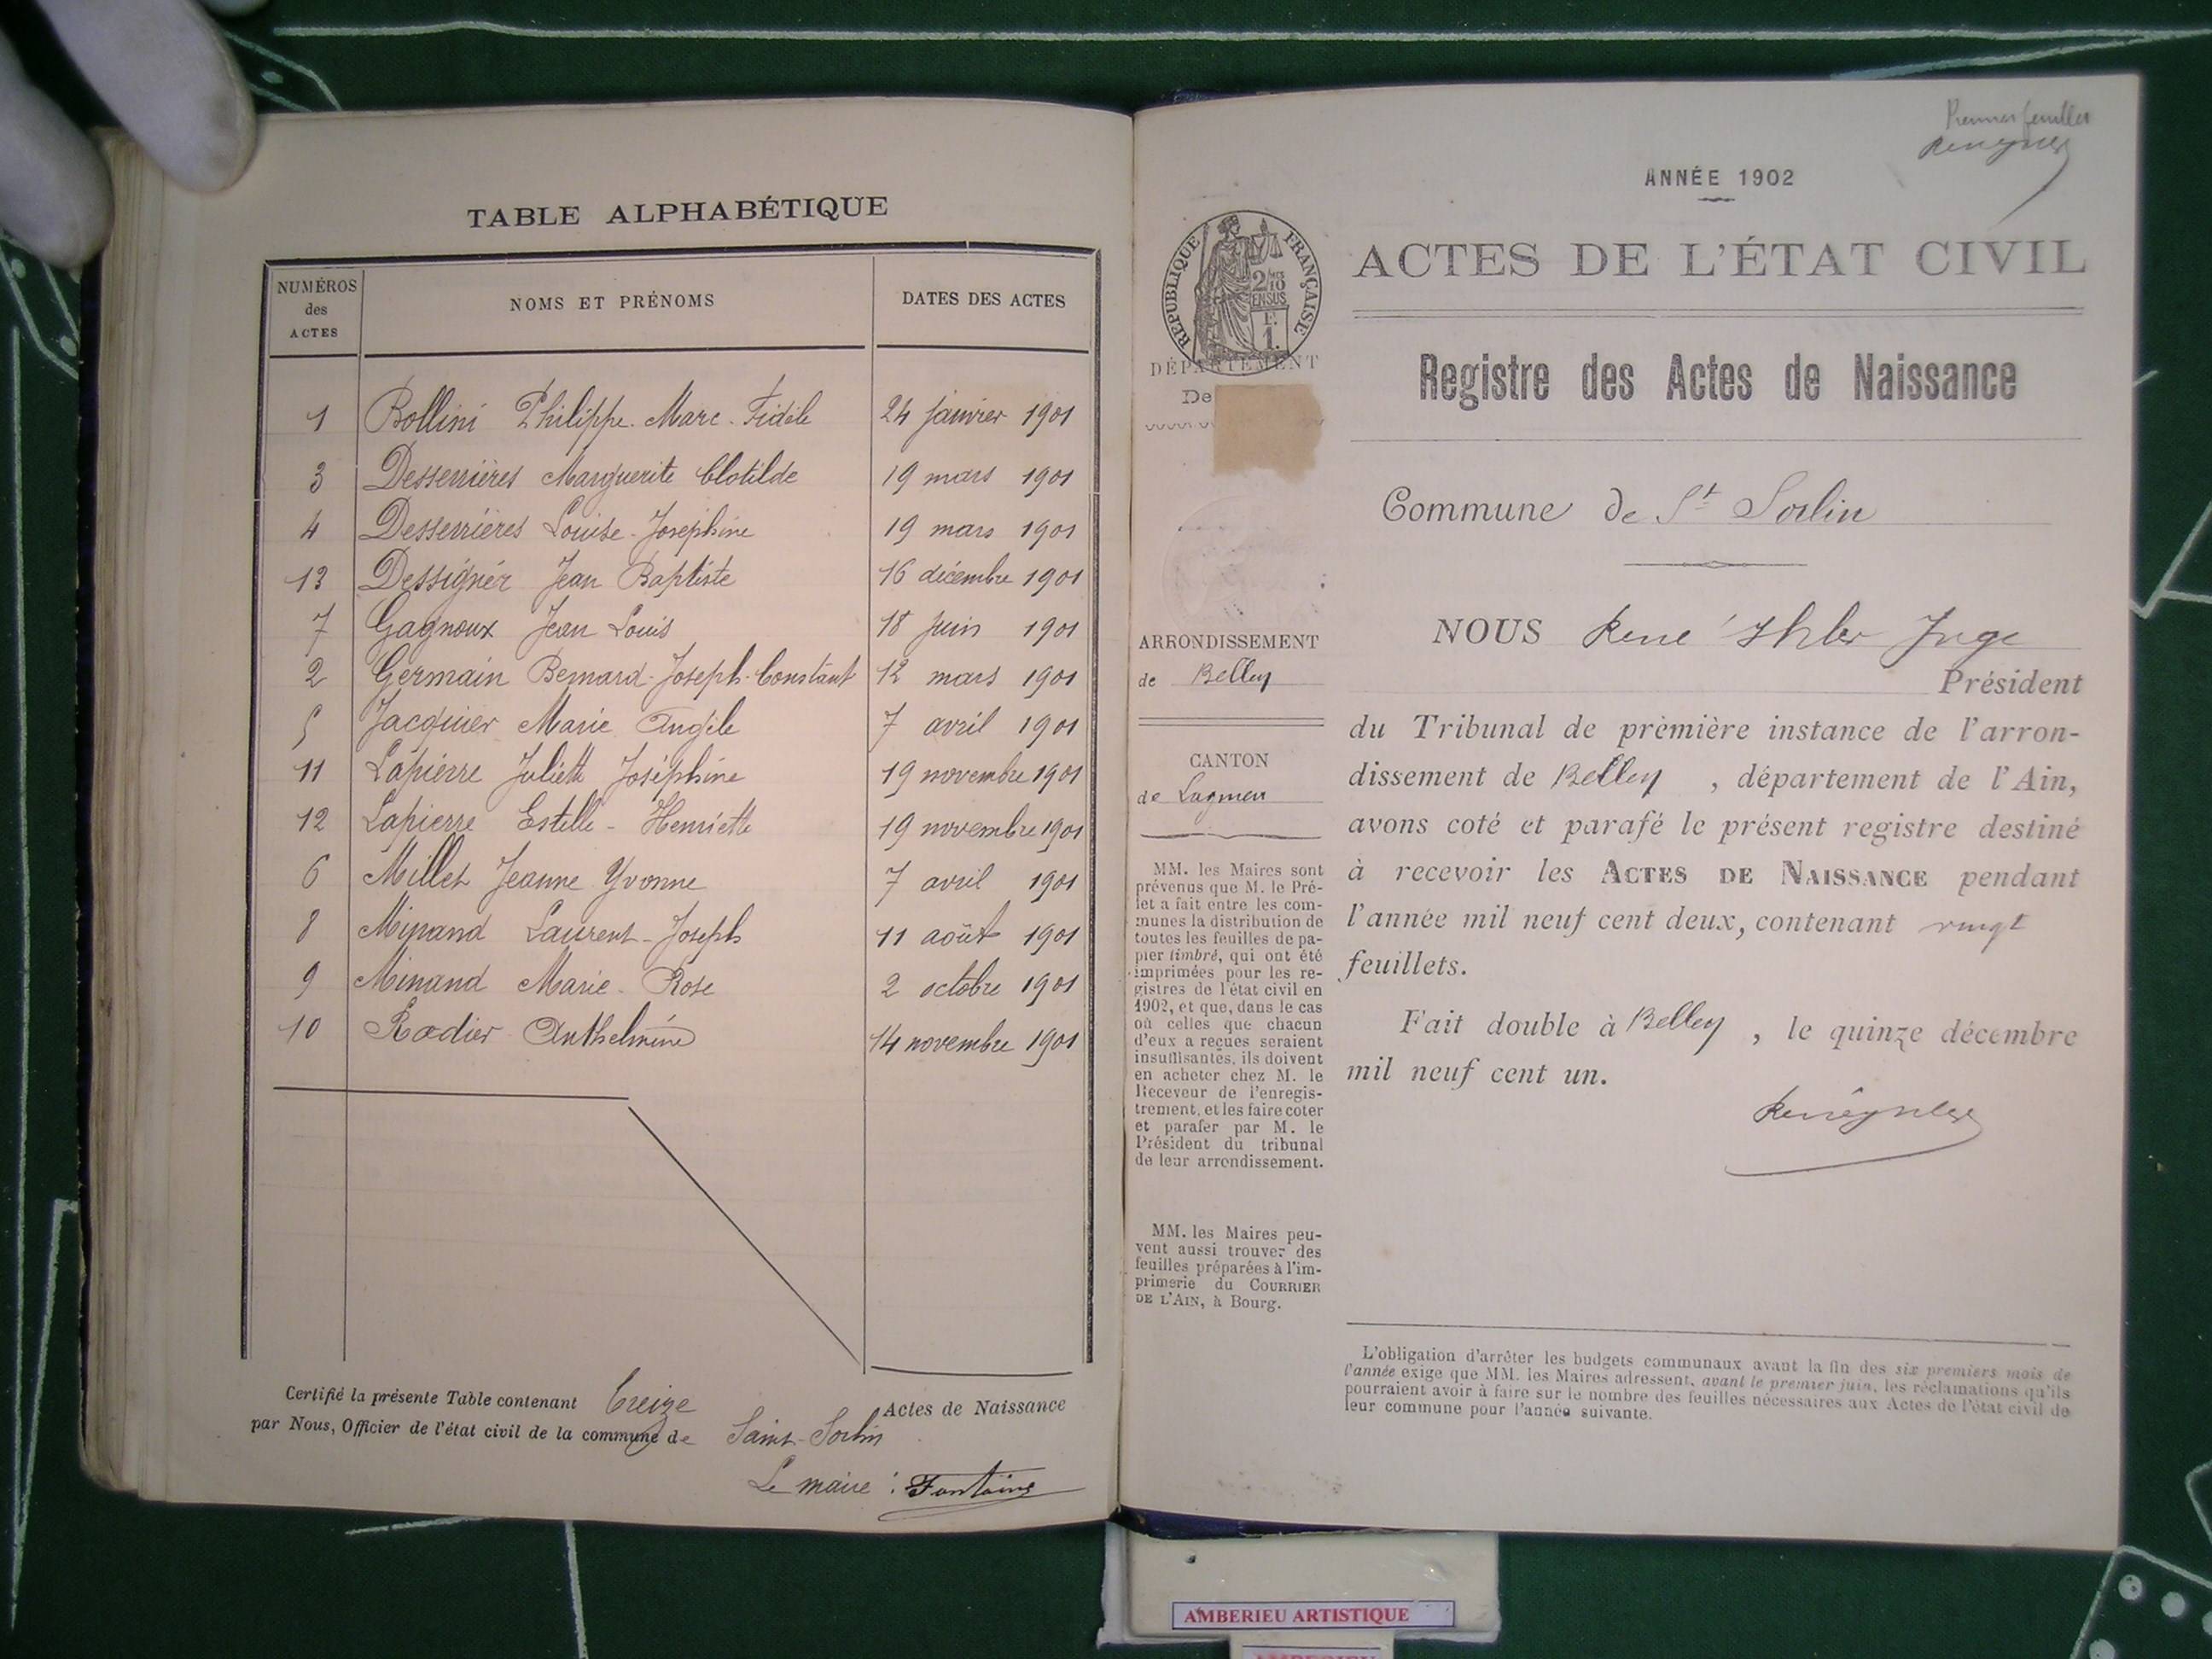 TABLE ALPHABÉTIQUE
NUMÉROS des ACTES NOMS ET PRÉNOMS DATES DES ACTES
1 Bollini Philippe. Marc. Fidèle 24 janvier 1901
3 Desserrières Marguerite Clotilde 19 mars 1901
4 Desserrières Louise-Joséphine 19 mars 1901
13 Dessignér Jean Baptiste 16 décembre 1901
7 Gagnoux Jean Louis 18 juin 1901
2 Germain Bernard-Joseph-Constant 12 mars 1901
5 Jacquier Marie Angèle 7 avril 1901
11 Lapierre Juliette Joséphine 19 novembre 1901
12 Lapierre Estelle-Henriette 19 novembre 1901
6 Millet Jeanne Yvonne 7 avril 1901
8 Minand Laurent-Joseph 11 août 1901
9 Minand Marie-Rose 2 octobre 1901
10 Rodier Anthelmine 14 novembre 1901
Certifié la présente Table contenant treize Actes de Naissance
par Nous, Officier de l'état civil de la commune de Saint-Sorlin
Le maire : Fontaine
Premier feuillet
ANNÉE 1902
RÉPUBLIQUE FRANÇAISE
2/10 EN SUS
F. 1.
DÉPARTEMENT
De
ARRONDISSEMENT
de Belley
CANTON
de Lagnieu
MM. les Maires sont
prévenus que M. le Pré-
fet a fait entre les com-
munes la distribution de
toutes les feuilles de pa-
pier timbré, qui ont été
imprimées pour les re-
gistres de l'état civil en
1902, et que, dans le cas
où celles que chacun
d'eux a reçues seraient
insuffisantes, ils doivent
en acheter chez M. le
Receveur de l'enregis-
trement, et les faire coter
et parafer par M. le
Président du tribunal
de leur arrondissement.
MM. les Maires peu-
vent aussi trouver des
feuilles préparées à l'im-
primerie du COURRIER
DE L'AIN, à Bourg.
ACTES DE L'ÉTAT CIVIL
Registre des Actes de Naissance
Commune de St Sorlin
NOUS René Ihler Juge
Président
du Tribunal de prèmière instance de l'arron-
dissement de Belley , département de l'Ain,
avons coté et parafé le présent registre destiné
à recevoir les ACTES DE NAISSANCE pendant
l'année mil neuf cent deux, contenant vingt
feuillets.
Fait double à Belley , le quinze décembre
mil neuf cent un.
L'obligation d'arrêter les budgets communaux avant la fin des six premiers mois de
l'année exige que MM. les Maires adressent, avant le premier juin, les réclamations qu'ils
pourraient avoir à faire sur le nombre des feuilles nécessaires aux Actes de l'état civil de
leur commune pour l'année suivante.
AMBERIEU ARTISTIQUE